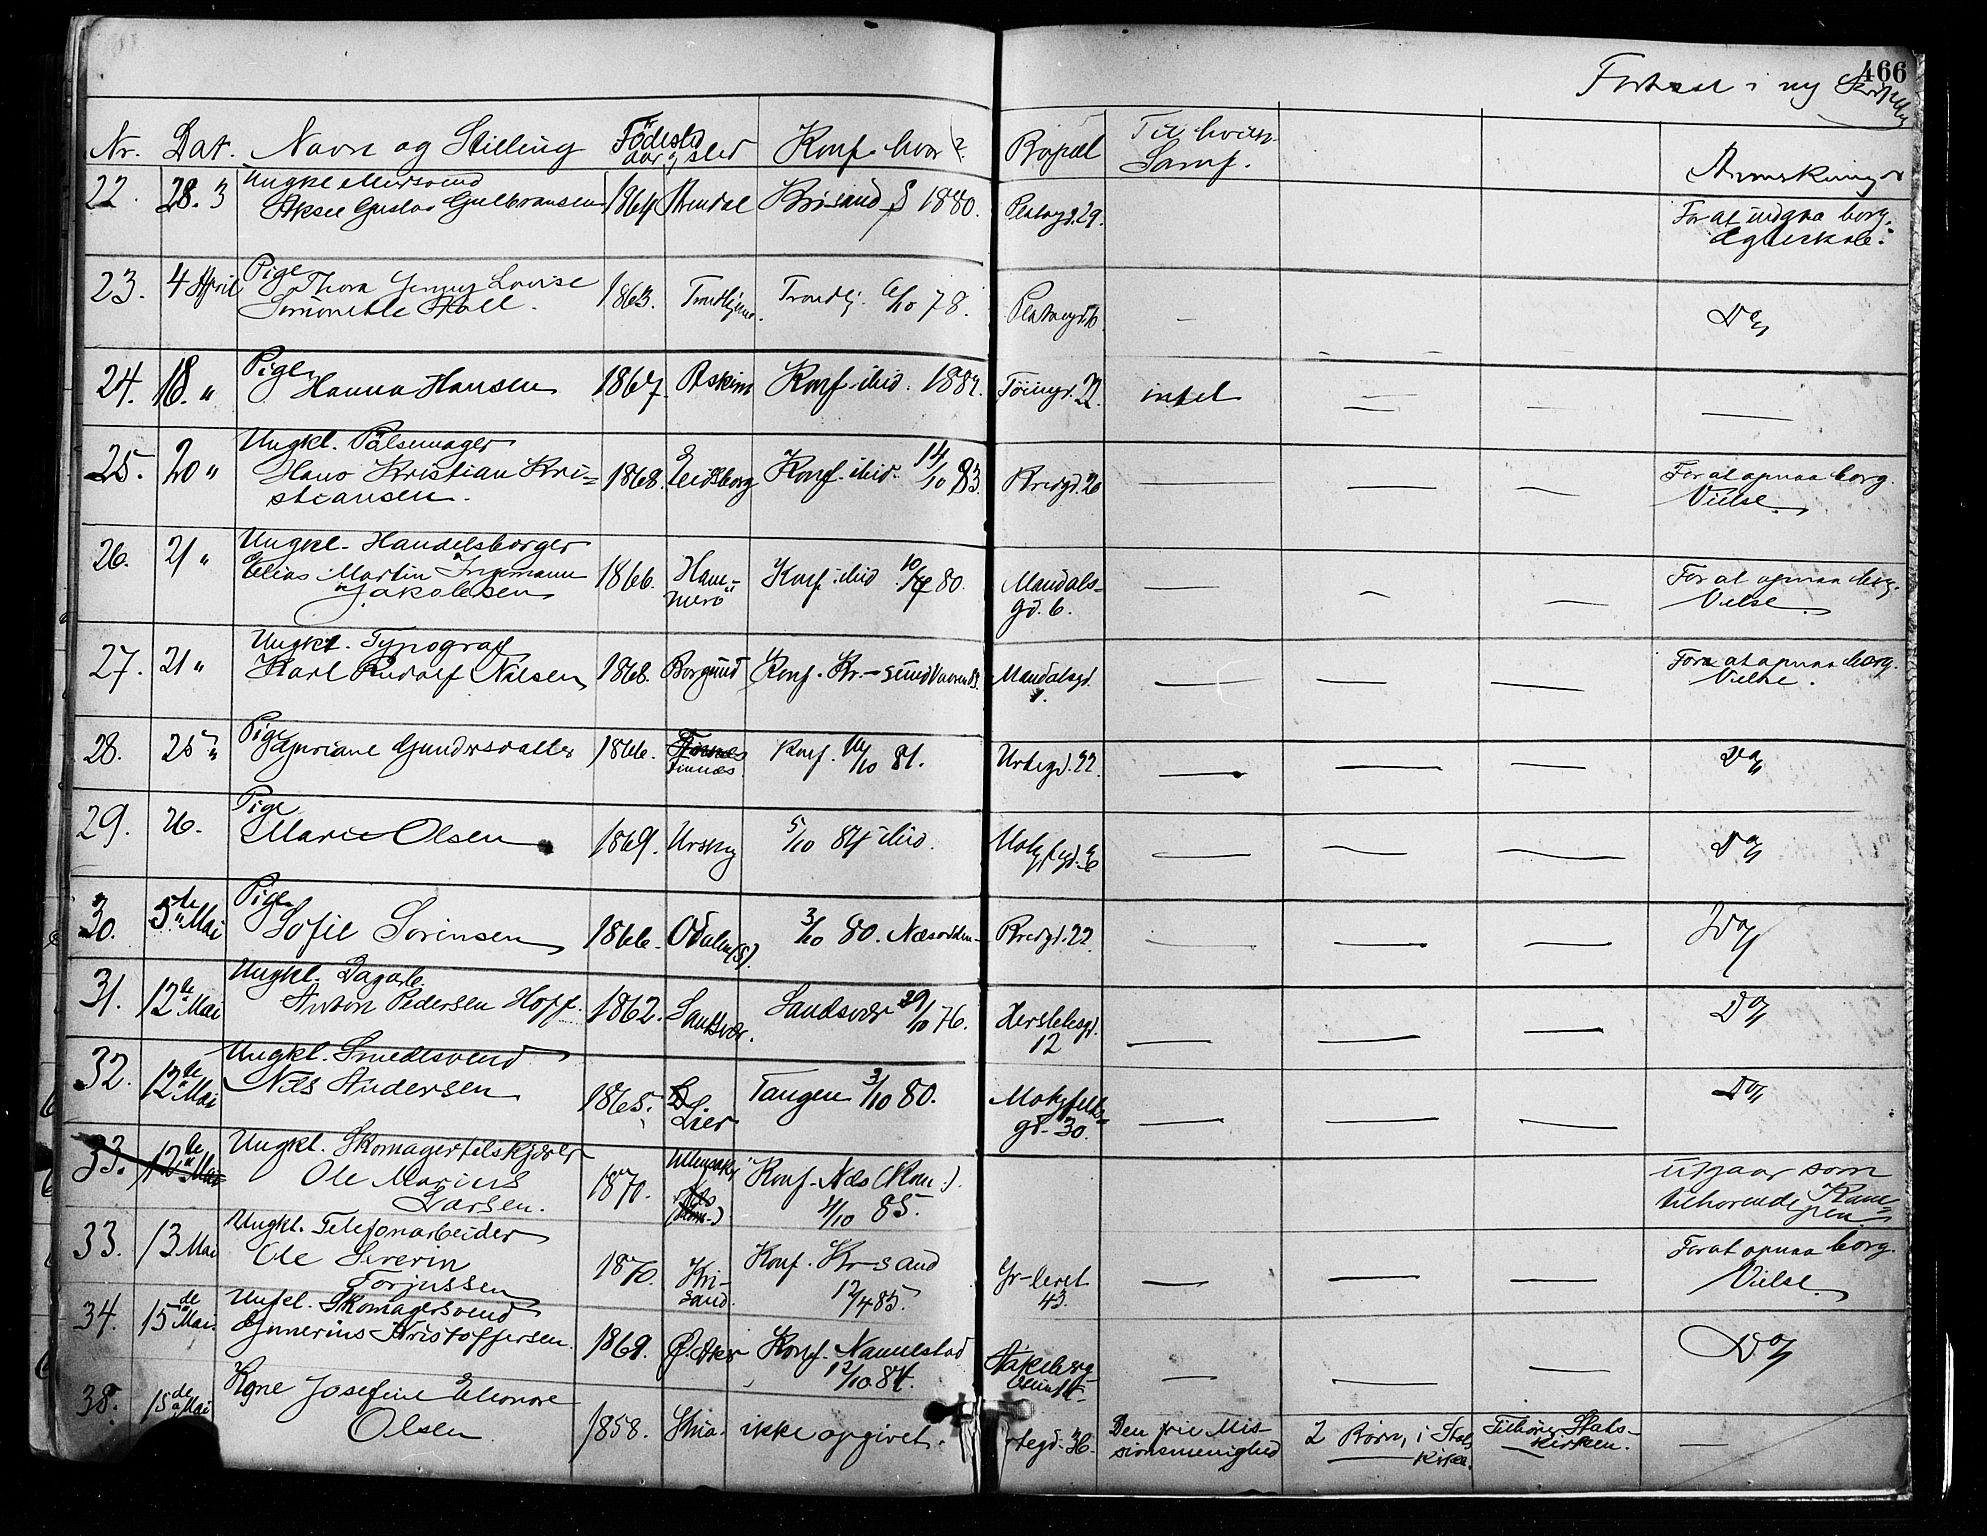 466
Fortsat i ny
Nr. Dat. Navn og Stilling Födested aar og sted Konf. hvor? Bopæl Til hvilk. Samf. Anmerkninger
22. 28. 3 Ungkl.
Aksel Gustav Gulbransen 1864 Arendal Kr.sand 1880. Platougd. 29. For at indgaa borg.
Ægteskab.
23. 4 April Pige Thora Jenny Lovise
Holl. 1863. Trondhjem. Trondhj. 6/10 78. Platougd. Do
24. 18. " Pige
Hanna Hansen 1867. Askim Konf. ibid. 188 Töiengd. 22. intet
25. 20 " Ungkl. Pölsemager
Hans Kristian Kri=
stiansen. 1868. Eidsborg Konf. ibid. 14/10 83. Bredgd. 20 For at opnaa borg.
Vielse.
26. 21 " Ungkl. Handelsborger
Elias Martin Ingemann
Jakobsen 1866. Ham-
merö Konf. ibid 80. Mandals-
gd. 6. For at opnaa borg.
Vielse.
27. 21 " Ungkl. Typograf
Karl Rudolf Nilsen 1868. Borgund Konf. Kr-sund Vaaren 83. Mandalsgd.
1. For at opnaa borg.
Vielse.
28. 25 " Pige
Gundersdatter 1866. Konf. /10 81. Urtegd. 22. Do
29. 26. Pige
Marie Olsen 1869. Urskog 5/10 84 ibid. Do
30. 5te Mai Pige
Sofie Sörensen 1866. Odalen (S). 3/10 80. Næsodden Bredgd. 22. Do
31. 12te Mai Ungkl. Dagarb.
Anton Pedersen Hoff. 1862. Sandsvær. Sandsvær 29/10 76. Herslebsgd.
12 Do
32. 12te Mai Ungkl. Smedesvend
Nils Andersen 1865. Lier Tangen 3/10 80. Motzfeldts-
gd. 30. Do
33. 12te Mai Ungkl. Skomager
Ole Marius
Larsen. 1870. Ullensaker Konf. Næs (Rom.).
4/10 85. udgaar som
tilhorende Kam=
pen.
33. 13 Mai Ungkl. Telefonarbeider
Ole Severin
Torjussen 1870. Kri-
sand. Konf. Kr-sand
12/4 85. Gr-leret
43. For at opnaa borg.
Vielse.
34. 15de Mai. Ungkl. Skomagersvend
Gunerius Kristoffersen. 1869. Ö. Aker Konf. Nannestad
12/10 84. Do
35. 15de Mai Kone Josefine Eleonore
Olsen 1858. Kria. ikke opgivet. 36. Den frie Mis-
sionsmenighed 2 Börn, i Stats
Kirke. Tilhörer Stats-
kirken.